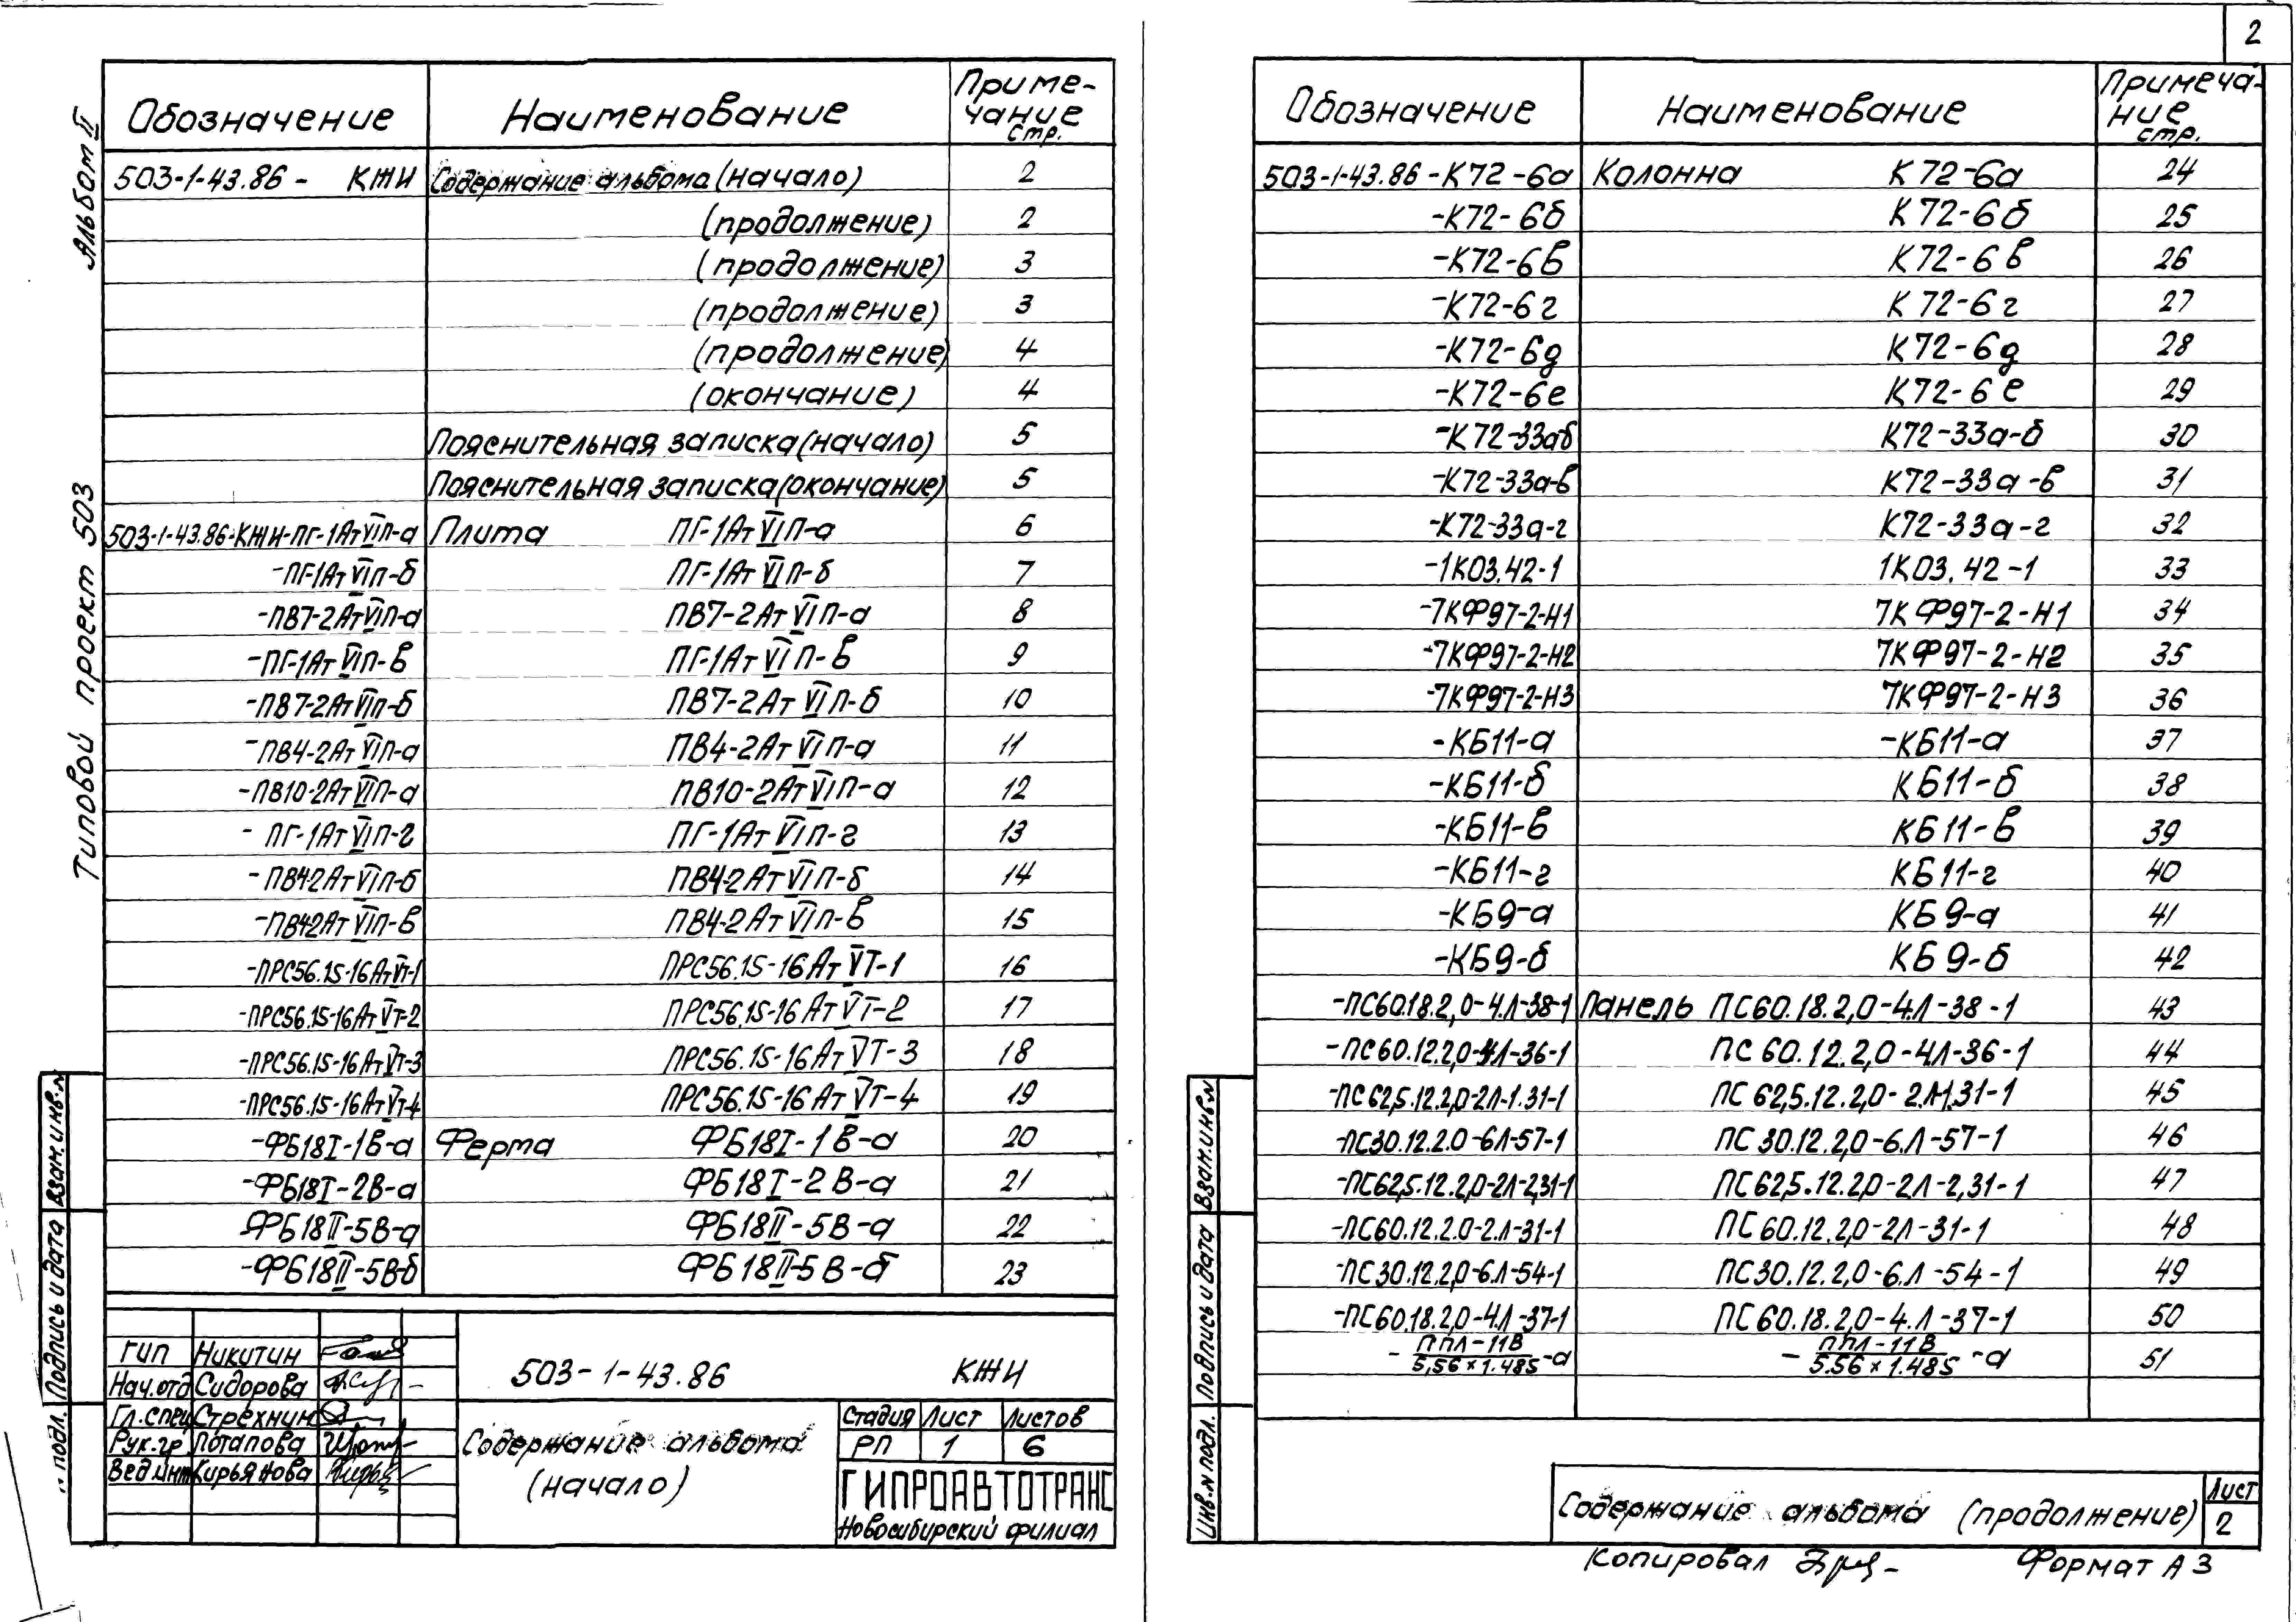 2
Альбом II
Типовой проект 503
Обозначение Наименование Примечание стр.
503-1-43.86- КЖИ Содержание альбома (начало) 2
(продолжение) 2
(продолжение) 3
(продолжение) 3
(продолжение) 4
(окончание) 4
Пояснительная записка (начало) 5
Пояснительная записка (окончание) 5
503-1-43.86-КЖИ-ПГ-1АтVIП-а Плита ПГ-1АтVIП-а 6
-ПГ-1АтVIП-б ПГ-1АтVIП-б 7
-ПВ7-2АтVIП-а ПВ7-2АтVIП-а 8
-ПГ-1АтVIП-в ПГ-1АтVIП-в 9
-ПВ7-2АтVIП-б ПВ7-2АтVIП-б 10
-ПВ4-2АтVIП-а ПВ4-2АтVIП-а 11
-ПВ10-2АтVIП-а ПВ10-2АтVIП-а 12
- ПГ-1АтVIП-г ПГ-1АтVIП-г 13
- ПВ4-2АтVIП-б ПВ4-2АтVIП-б 14
-ПВ4-2АтVIП-в ПВ4-2АтVIП-в 15
-ПРС56.15-16АтVТ-1 ПРС56.15-16АтVТ-1 16
-ПРС56.15-16АтVТ-2 ПРС56.15-16АтVТ-2 17
-ПРС56.15-16АтVТ-3 ПРС56.15-16АтVТ-3 18
-ПРС56.15-16АтVТ-4 ПРС56.15-16АтVТ-4 19
-ФБ18I-1В-а Ферма ФБ18I-1В-а 20
-ФБ18I-2В-а ФБ18I-2В-а 21
ФБ18II-5В-а ФБ18II-5В-а 22
-ФБ18II-5В-б ФБ18II-5В-б 23
ГИП Никитин
Нач.отд Сидорова
Гл.спец Стрехнин
Рук.гр. Потапова
Вед.инж Кирьянова
503-1-43.86 КЖИ
Содержание альбома (начало)
Стадия Лист Листов
РП 1 6
ГИПРОАВТОТРАНС
Новосибирский филиал
Взам.инв.№
Подпись и дата
подл.
Обозначение Наименование Примечание стр.
503-1-43.86-К72-6а Колонна К72-6а 24
-К72-6б К72-6б 25
-К72-6в К72-6в 26
-К72-6г К72-6г 27
-К72-6д К72-6д 28
-К72-6е К72-6е 29
-К72-33аб К72-33а-б 30
-К72-33а-в К72-33а-в 31
-К72-33а-г К72-33а-г 32
-1К03.42-1 1К03.42-1 33
-7КФ97-2-Н1 7КФ97-2-Н1 34
-7КФ97-2-Н2 7КФ97-2-Н2 35
-7КФ97-2-Н3 7КФ97-2-Н3 36
-КБ11-а -КБ11-а 37
-КБ11-б КБ11-б 38
-КБ11-в КБ11-в 39
-КБ11-г КБ11-г 40
-КБ9-а КБ9-а 41
-КБ9-б КБ9-б 42
-ПС60.18.2,0-4.Л-38-1 Панель ПС60.18.2,0-4.Л-38-1 43
-ПС60.12.2,0-4Л-36-1 ПС60.12.2,0-4Л-36-1 44
-ПС62,5.12.2,0-2Л-1.31-1 ПС62,5.12.2,0-2Л-1.31-1 45
-ПС30.12.2.0-6Л-57-1 ПС30.12.2,0-6.Л-57-1 46
-ПС62,5.12.2,0-2Л-2,31-1 ПС62,5.12.2,0-2Л-2,31-1 47
-ПС60.12.2.0-2.Л-31-1 ПС60.12.2,0-2Л-31-1 48
-ПС30.12.2,0-6.Л-54-1 ПС30.12.2,0-6.Л-54-1 49
-ПС60.18.2,0-4.Л-37-1 ПС60.18.2,0-4.Л-37-1 50
- ППЛ-11В / 5,56×1.485 -а - ППЛ-11В / 5.56×1.485 -а 51
Взам.инв.№
Подпись и дата
Инв.№ подл.
Содержание альбома (продолжение)
Лист
2
Копировал
Формат А3